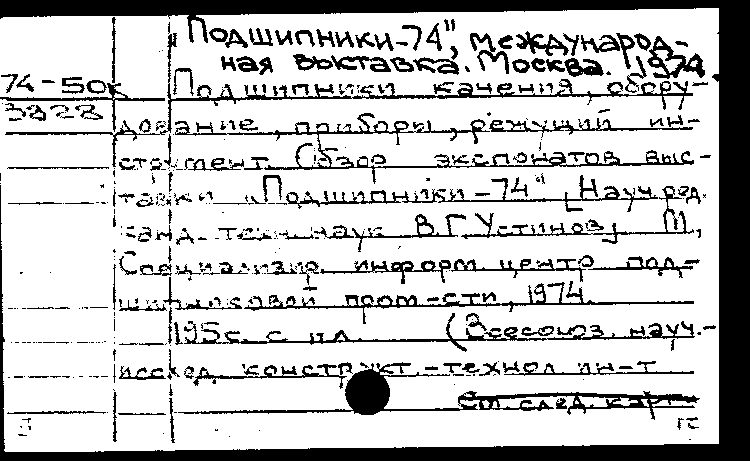 "Подшипники-74", международ-
ная выставка. Москва. 1974.
74-50к Подшипники качения, обору-
3828
дование, приборы, режущий ин-
струмент. Обзор экспонатов выс-
тавки "Подшипники-74" [Науч.ред.
канд. техн. наук В.Г.Устинов] М.,
Специализир. информ. центр под-
шипниковой пром-сти, 1974.
195с. с ил. (Всесоюз. науч.-
исслед. конструкт.-технол. ин-т
См. след. карт